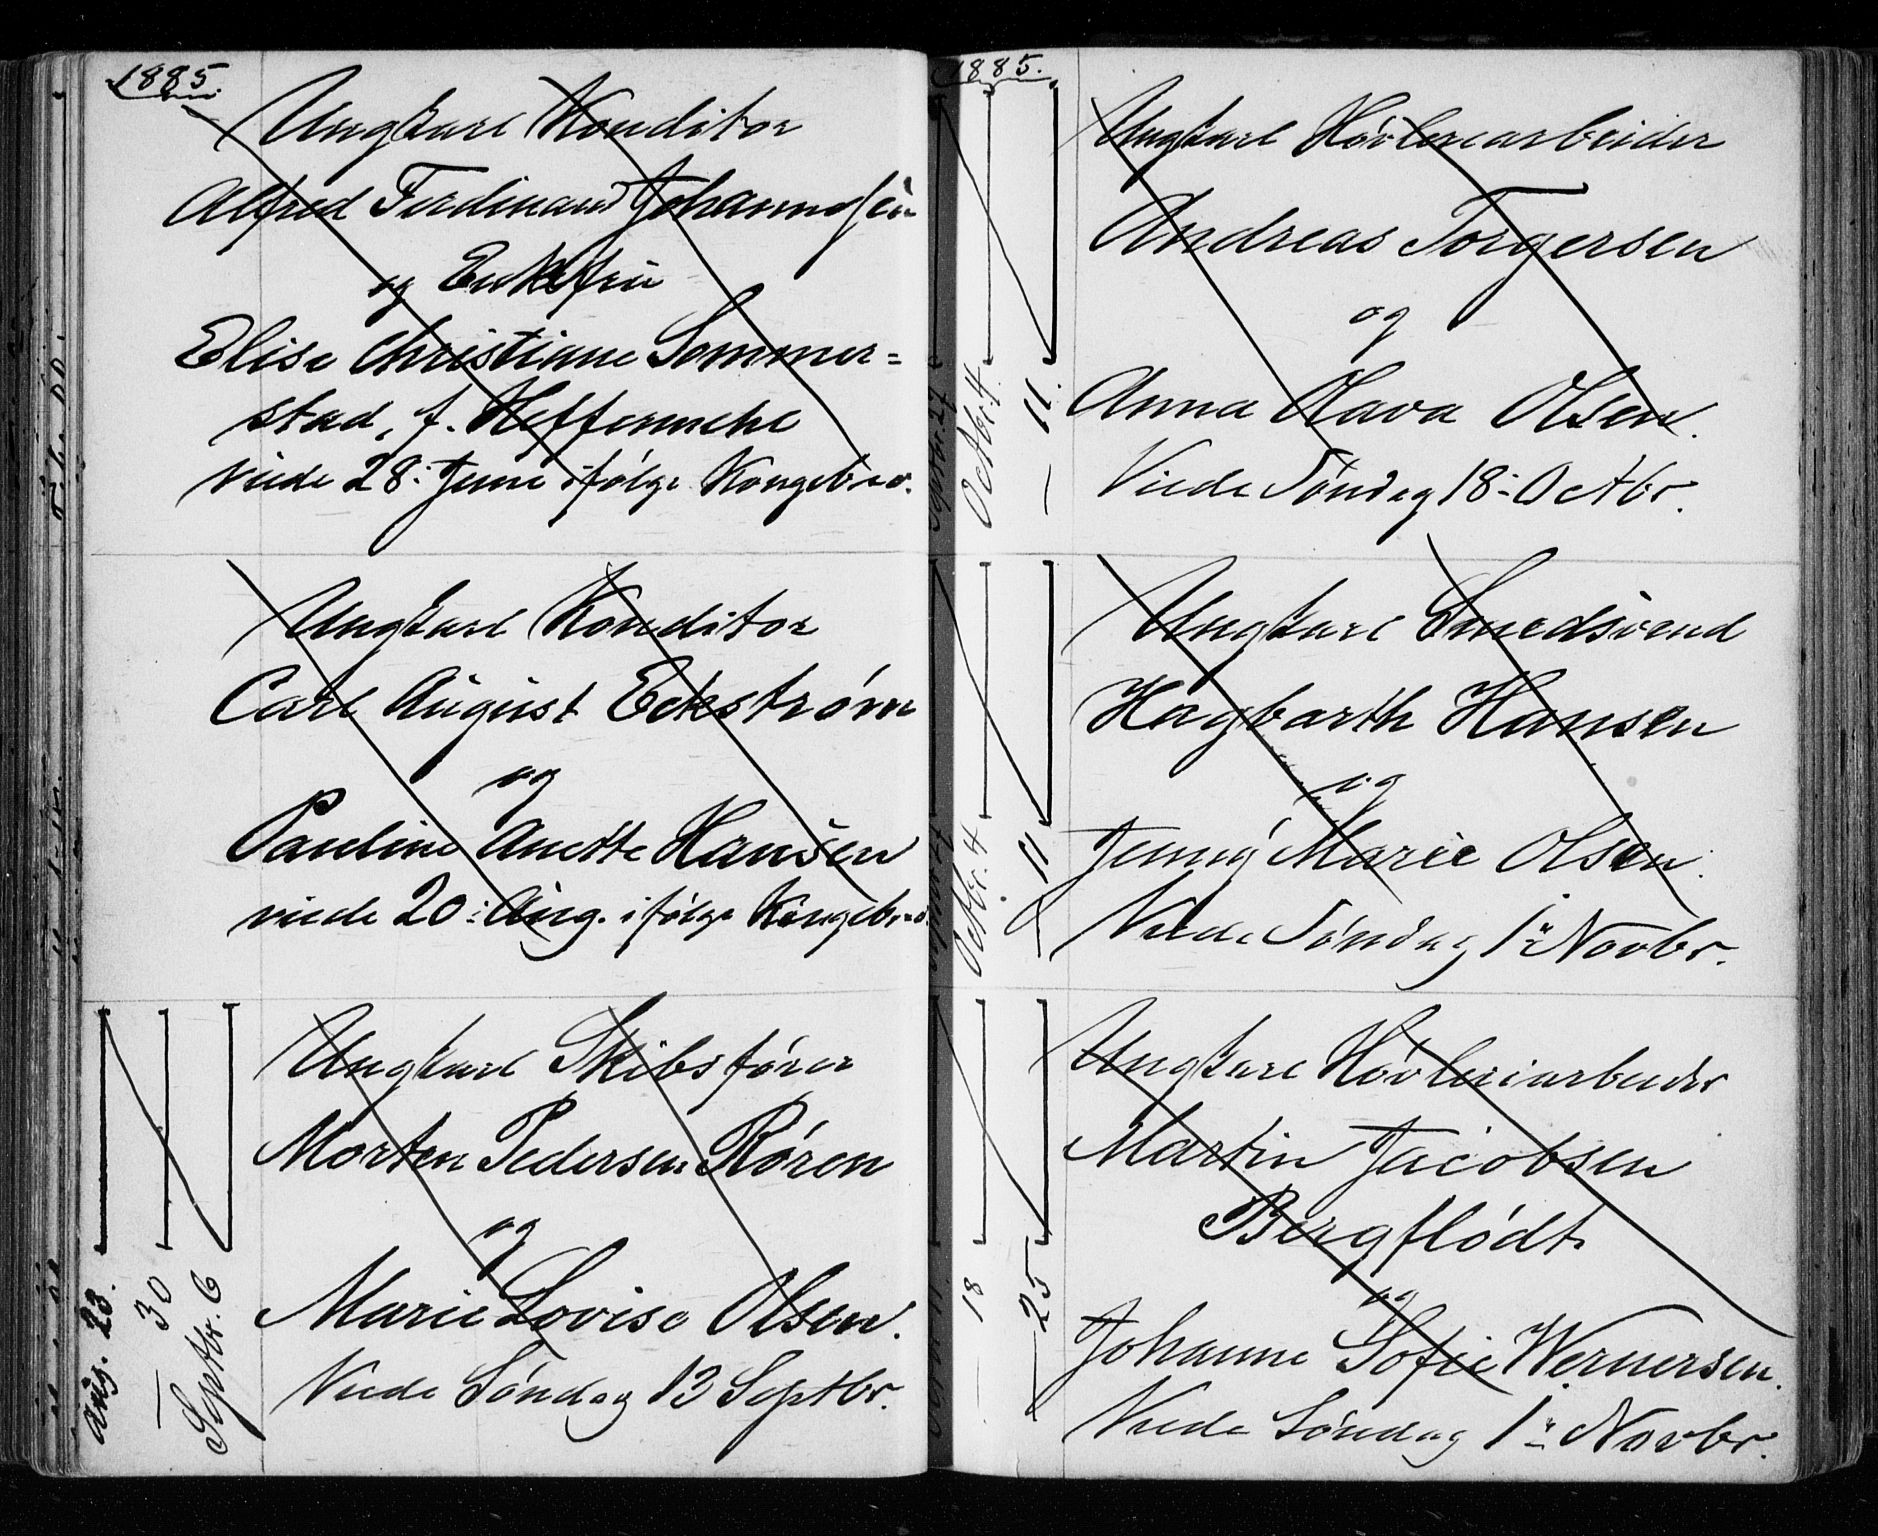 1885.
Ungkarl Konditor
Alfred Ferdinand Johannesen
og Enkefru
Elise Christiane Sommer=
stad, f.
viede 28: Juni ifølge Kongebrev.
Ungkarl Konditor
Carl August Eckstrøm
og
Pauline Anette Hansen
viede 20: Aug. ifølge Kongebrev.
Aug. 23.
— 30
Septbr. 6
Ungkarl Skibsfører
Morten Pedersen Røren
og
Marie Lovise Olsen.
Viede Søndag 13 Septbr.
1885.
Octbr. 4.
— 11.
Ungkarl Høvleriarbeider
Andreas Torgersen
og
Anna Olava Olsen.
Viede Søndag 18: Octbr.
Octbr. 4
— 11
Ungkarl Smedsvend
Hagbarth Hansen
og
Jenny Marie Olsen.
Viede Søndag 1: Novbr.
— 18
— 25
Ungkarl Høvleriarbeider
Martin Jacobsen
Bergflødt
og
Johanne Sofie Wernersen.
Viede Søndag 1: Novbr.